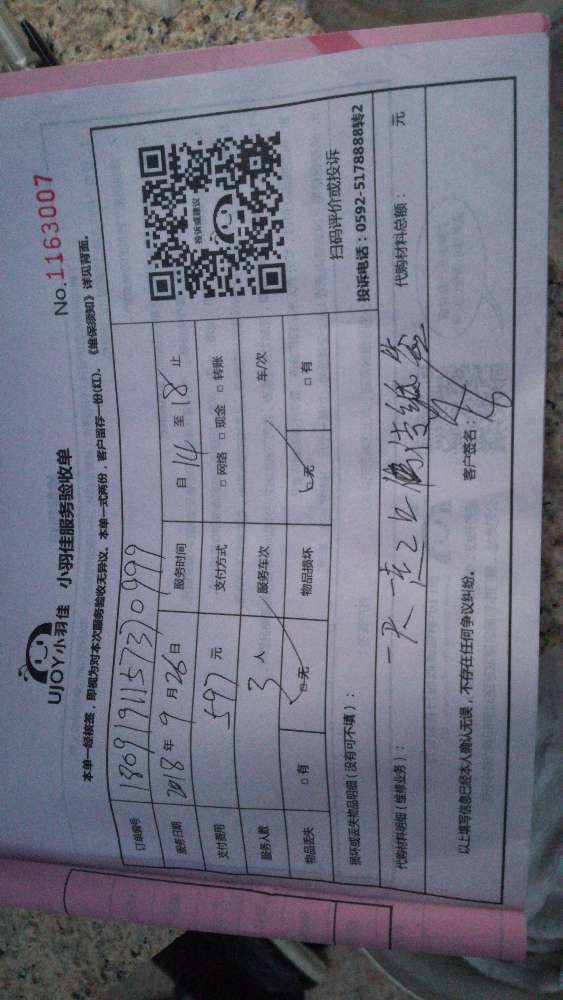 UJOY小羽佳 小羽佳服务验收单 No.1163007
本单一经核签，即视为对本次服务验收无异议。本单一式两份，客户留存一份(红)。《维保须知》详见背面。
订单编号 180919115737 0999
服务日期 2018年9月26日 服务时间 自14至18止
支付费用 597元 支付方式 □网络 □现金 □转账
服务人数 3人 服务车次 车/次
物品丢失 □有 □无 物品损坏 □无 □有
投诉或建议
扫码评价或投诉
投诉电话：0592-5178888转2
损坏或丢失物品明细（没有可不填）：
代购材料明细（维修业务）： 代购材料总额： 元
以上填写信息已经本人确认无误，不存在任何争议纠纷。 客户签名：